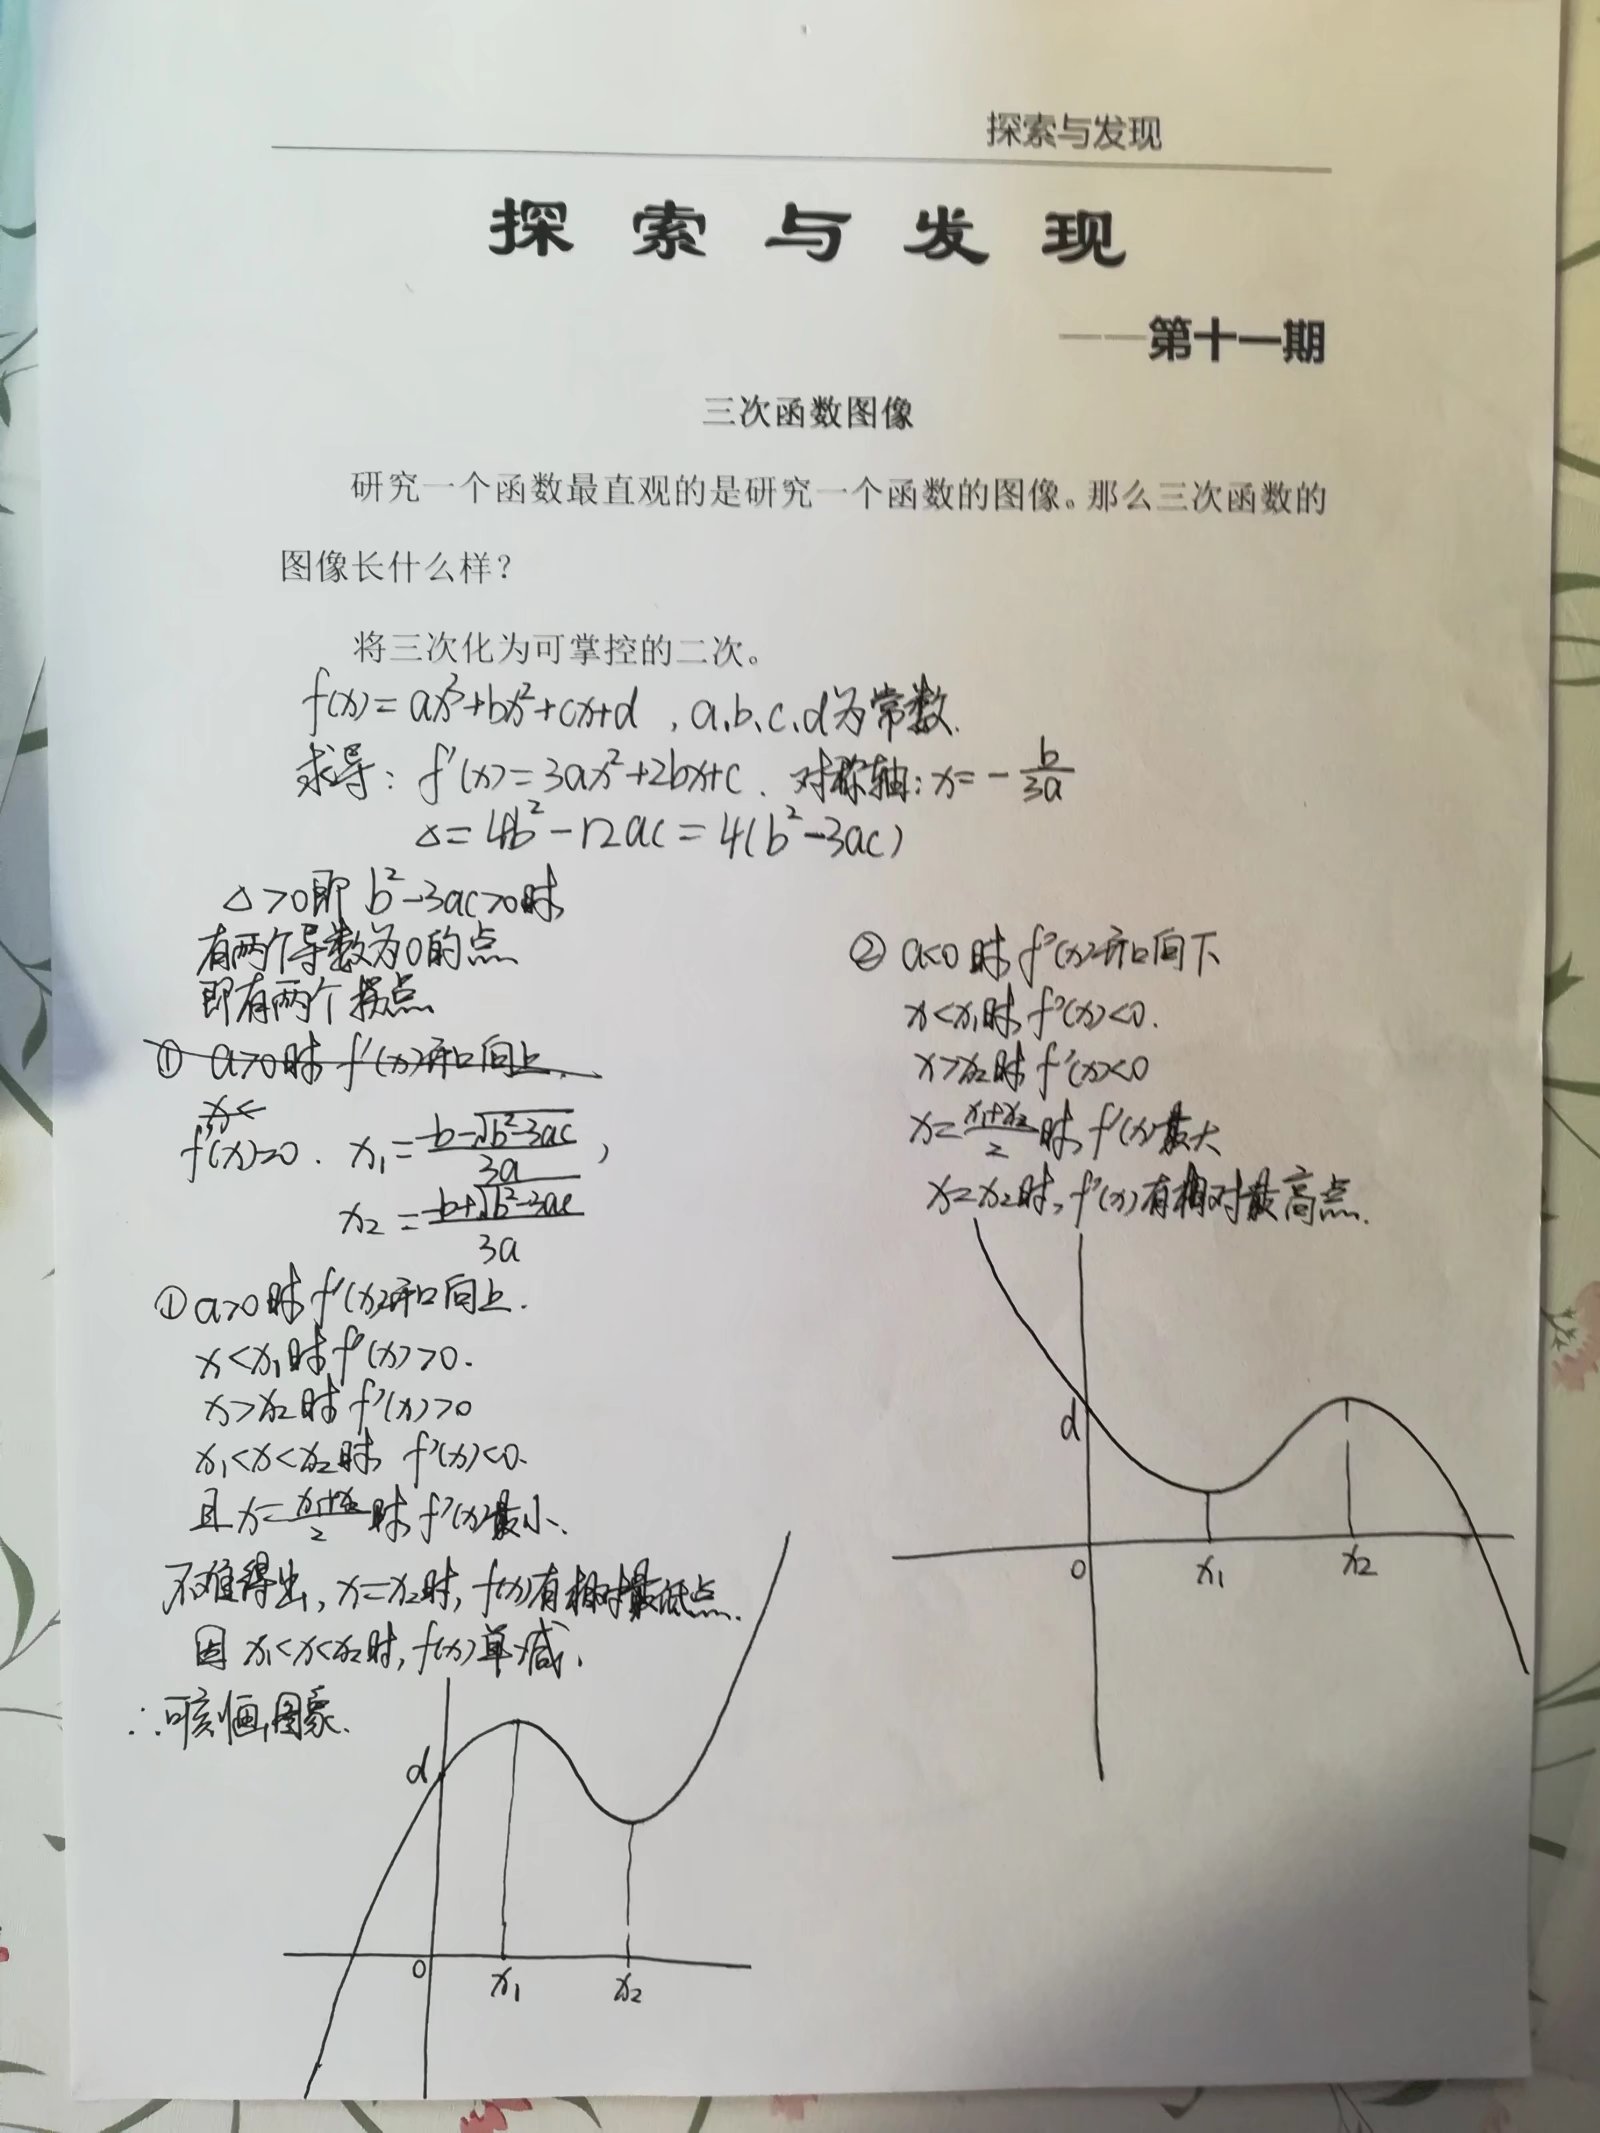 探索与发现
探索与发现
——第十一期
三次函数图像
研究一个函数最直观的是研究一个函数的图像。那么三次函数的
图像长什么样？
将三次化为可掌控的二次。
f(x)=ax³+bx²+cx+d ,a、b、c、d为常数.
求导：f'(x)=3ax²+2bx+c. 对称轴：x=-b/3a
△=4b²-12ac=4(b²-3ac)
△>0即 b²-3ac>0时
有两个导数为0的点
即有两个拐点
① a>0时 f'(x)开口向上.
x<
f'(x)=0. x₁=(-b-√(b²-3ac))/3a,
x₂=(-b+√(b²-3ac))/3a
①a>0时f'(x)开口向上.
x<x₁时f'(x)>0.
x>x₂时f'(x)>0
x₁<x<x₂时 f'(x)<0.
且x=(x₁+x₂)/2时f'(x)最小.
不难得出,x=x₂时,f(x)有相对最低点.
因x₁<x<x₂时,f(x)单减.
∴可刻画图象.
d
0
x₁
x₂
② a<0时f'(x)开口向下
x<x₁时f'(x)<0.
x>x₂时f'(x)<0
x=(x₁+x₂)/2时f'(x)最大
x=x₂时,f'(x)有相对最高点.
d
0
x₁
x₂